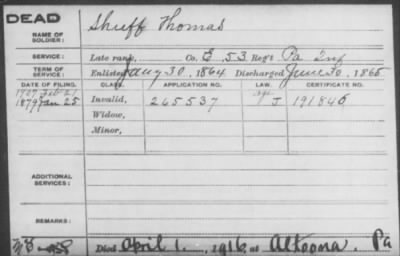 DEAD
NAME OF SOLDIER: Shuff Thomas
SERVICE: Late rank, Co. E 53 Reg't Pa Inf
TERM OF SERVICE: Enlisted Aug 30, 1864 Discharged June 30, 1865
DATE OF FILING. CLASS. APPLICATION NO. LAW. CERTIFICATE NO.
1907 Feb 21
1879 Jan 25 Invalid, 265537 J 191846
Widow,
Minor,
ADDITIONAL SERVICES:
REMARKS:
Died April 1. 1916, at Altoona. Pa